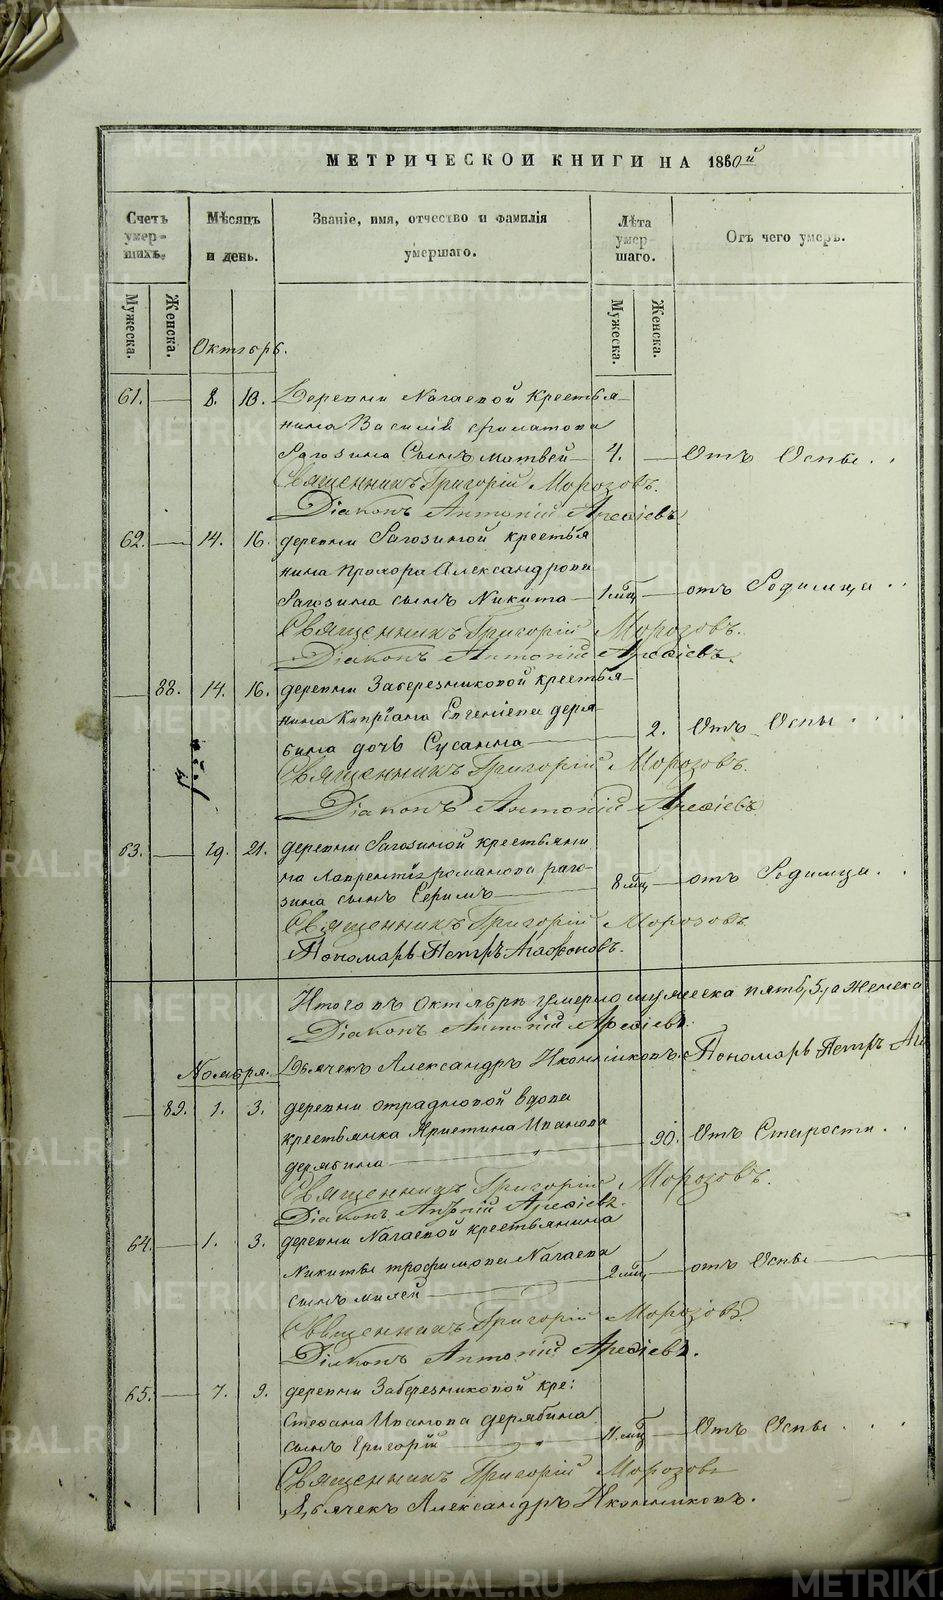 МЕТРИЧЕСКОЙ КНИГИ НА 1860й
Счетъ умер-шихъ.
Мѣсяцъ и день.
Званіе, имя, отчество и фамилія умершаго.
Лѣта умер-шаго.
Отъ чего умеръ.
Мужеска.
Женска.
Мужеска.
Женска.
Октябрь.
61. — 8. 10. Деревни Нагаевой крестья-
нина Василія Филатова
Рагозина Сынъ Матвей — 4. — Отъ Оспы . .
Священникъ Григорій Морозовъ.
Діаконъ Антоній Арефіевъ
62. — 14. 16. деревни Рагозиной крестья
нина Прохора Александрова
Рагозина сынъ Никита — 1 мц — отъ Родимца . .
Священникъ Григорій Морозовъ.
Діаконъ Антоній Арефіевъ.
— 88. 14. 16. деревни Заберезниковой крестья-
нина Кипріана Евгеніева деря-
бина дочь Сусанна — 2. Отъ Оспы . . .
Священникъ Григорій Морозовъ.
Діаконъ Антоній Арефіевъ
63. — 19. 21. деревни Рагозиной крестьяни
на Лаврентія романова раго-
зина сынъ Ефимъ — 8 мц — отъ Родимца . .
Священникъ Григорій Морозовъ
Пономарь Петръ Агафоновъ.
Итого въ Октябрѣ умерло мужеска пять, 5, а женска
Діаконъ Антоній Арефіевъ.
Ноября. Дьячекъ Александръ Иконниковъ. Пономарь Петръ Аг
— 89. 1. 3. деревни отрадновой вдова
крестьянка Христина Иванова
дерябина — 90. Отъ Старости . .
Священникъ Григорій Морозовъ.
Діаконъ Антоній Арефіевъ.
64. — 1. 3. деревни Нагаевой крестьянина
Никиты трофимова Нагаева
сынъ — 2 мц — отъ Оспы —
Священникъ Григорій Морозовъ
Діаконъ Антоній Арефіевъ.
65. — 7. 9. деревни Заберезниковой кре:
Стефана Иванова дерябина
сынъ Григорій — 11. мц — Отъ Оспы . . .
Священникъ Григорій Морозовъ
Дьячекъ Александръ Иконниковъ.
METRIKI.GASO-URAL.RU